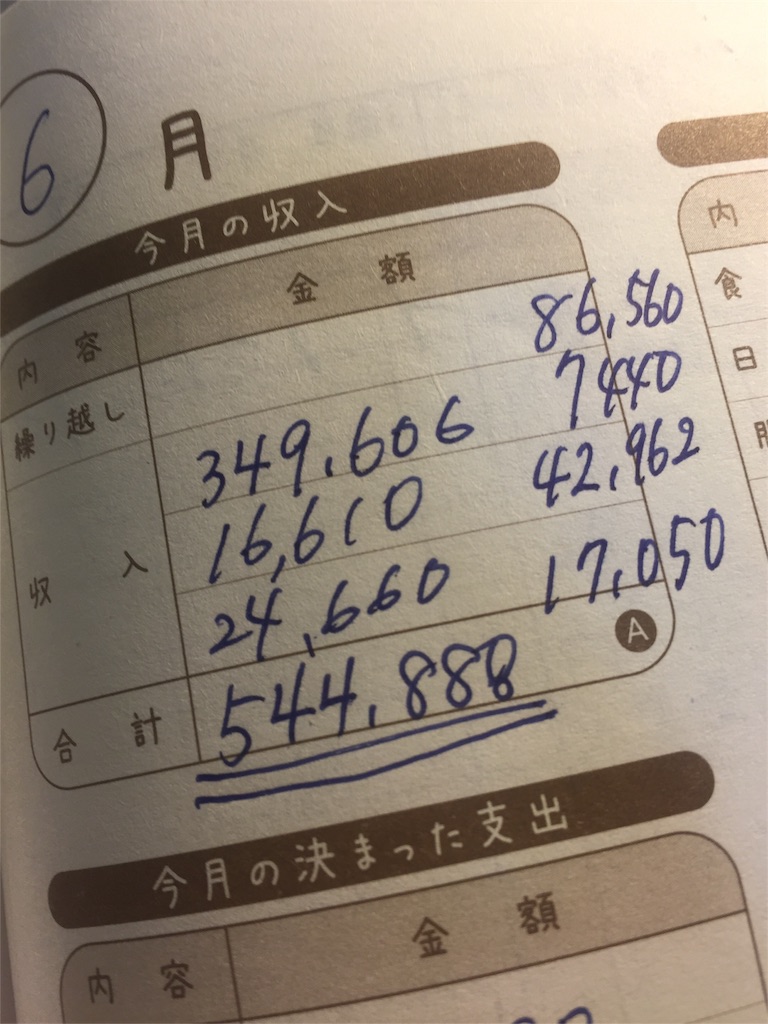 6月
今月の収入
内容 金額
繰り越し 86,560
7440
収入 349,606
42,962
16,610
17,050
24,660
合計 544,888 A
今月の決まった支出
内容 金額
内
食
日